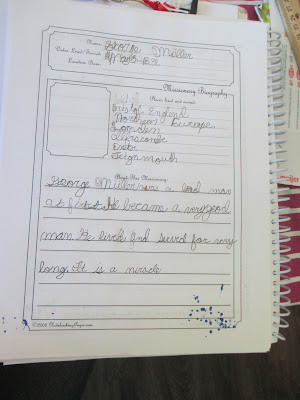 Name: George Müller
Dates Lived/Served:
Location Born:
Missionary Biography
Places lived and served:
Bristol England
Europe
London
Ilfracombe
Exeter
Teignmouth
About This Missionary:
George Müller was a bad man
at first. He became a very good
man. He lived and served for very
long. It is a miracle
©2008 NotebookingPages.com